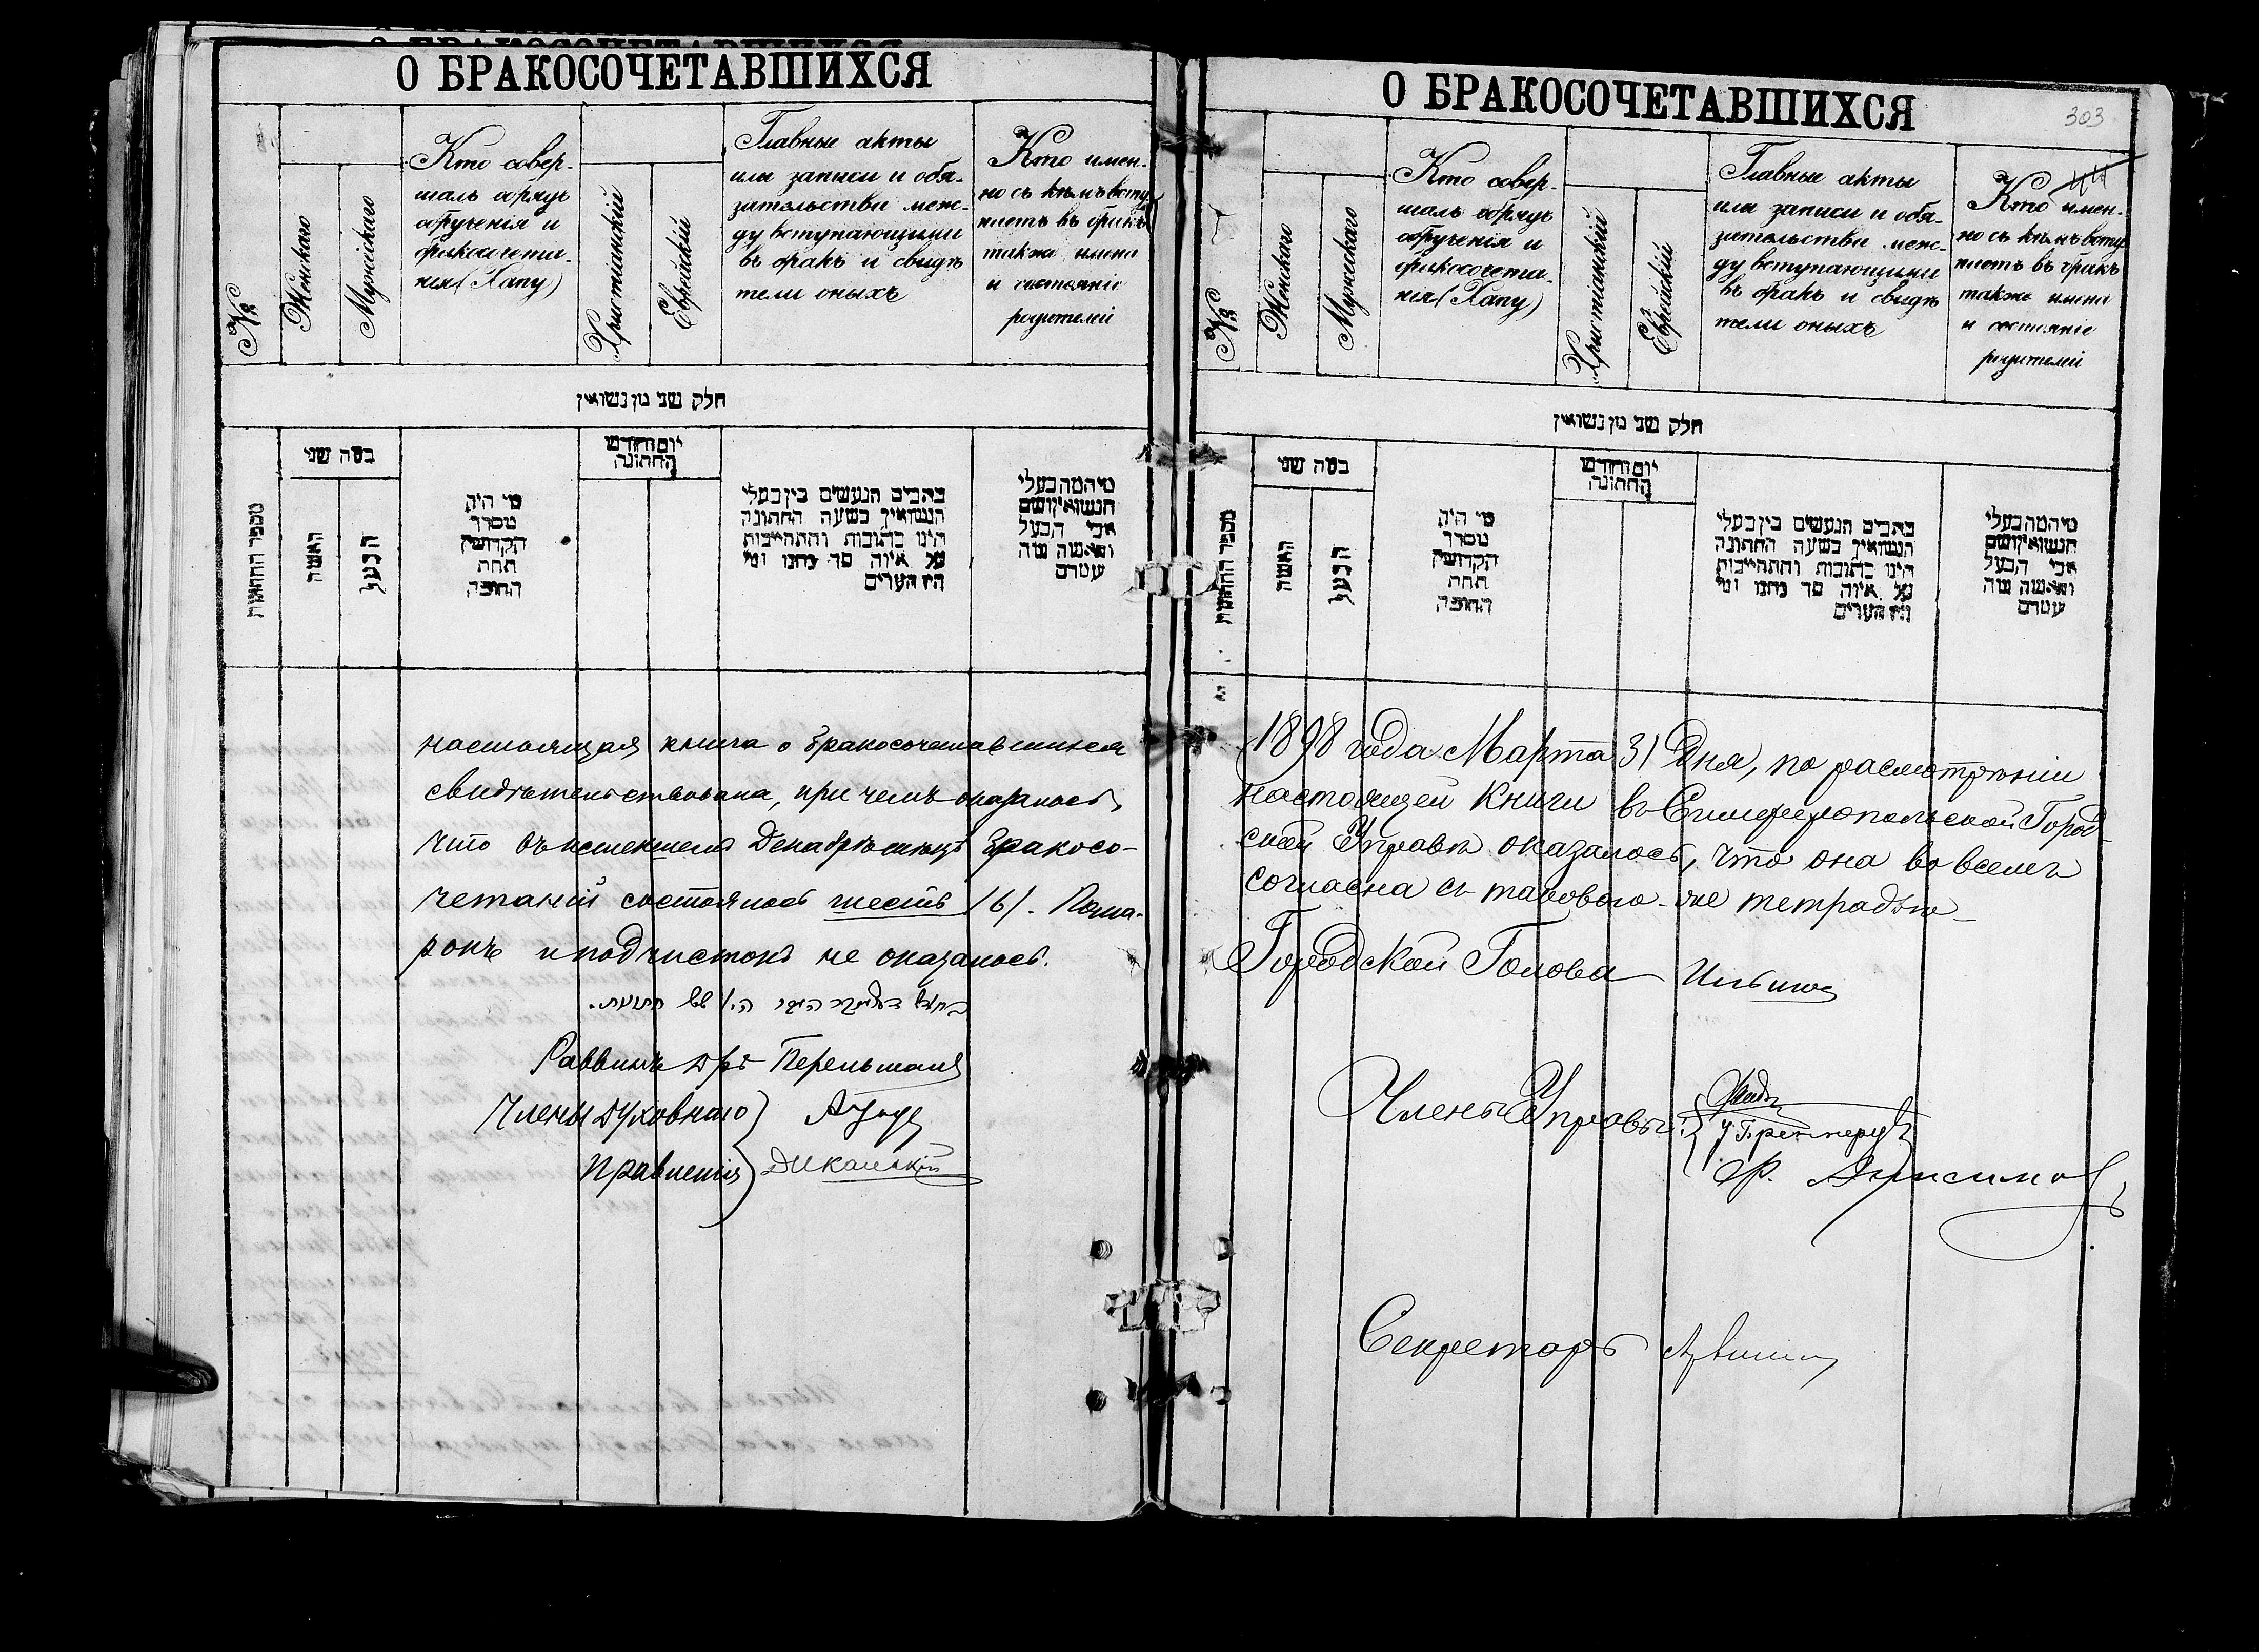 О БРАКОСОЧЕТАВШИХСЯ
№
Женскаго
Мужескаго
Кто совер-
шалъ обрядъ
обрученія и
бракосочета-
нія (Хапу)
Христіанскій
Еврейскій
Главные акты
или записи и обя-
зательства меж-
ду вступающими
въ бракъ и свидѣ
тели оныхъ
Кто имен-
но съ кѣмъ всту
паетъ въ бракъ
также имена
и состояніе
родителей
חלק שני מן נשואין
מספר החתונות
כמה שני
האשה
הבעל
מי היה
מסדר
הקדושין
תחת
החופה
יום וחודש
החתונה
כתבים הנעשים בין בעלי
הנשואין בשעה החתונה
היינו כתובות והתחייבות
על איזה סך נתנו ומי
היו העדים
מי המה בעלי
הנשואין ושם
אבי הבעל
והאשה
настоящая книга о бракосочетавшихся
свидѣтельствована, при чемъ оказалось,
что въ истекшемъ Декабрѣ мѣсяцѣ бракосо-
четаній состоялось шесть /6/. Пома-
рокъ и подчистокъ не оказалось.
Раввинъ Д-ръ Перельманъ
Члены Духовнаго
Правленія
О БРАКОСОЧЕТАВШИХСЯ
303
№
Женскаго
Мужескаго
Кто совер-
шалъ обрядъ
обрученія и
бракосочета-
нія (Хапу)
Христіанскій
Еврейскій
Главные акты
или записи и обя-
зательства меж-
ду вступающими
въ бракъ и свидѣ
тели оныхъ
Кто имен-
но съ кѣмъ всту
паетъ въ бракъ
также имена
и состояніе
родителей
חלק שני מן נשואין
מספר החתונות
כמה שני
האשה
הבעל
מי היה
מסדר
הקדושין
תחת
החופה
יום וחודש
החתונה
כתבים הנעשים בין בעלי
הנשואין בשעה החתונה
היינו כתובות והתחייבות
על איזה סך נתנו ומי
היו העדים
מי המה בעלי
הנשואין ושם
אבי הבעל
והאשה
1898 года Марта 31 дня, по расмотрѣніи
настоящей книги въ Симферопольской Город-
ской Управѣ оказалось, что она во всемъ
согласна съ таковою-же тетрадью
Городской Голова Ильинъ
Члены Управы
Секретарь